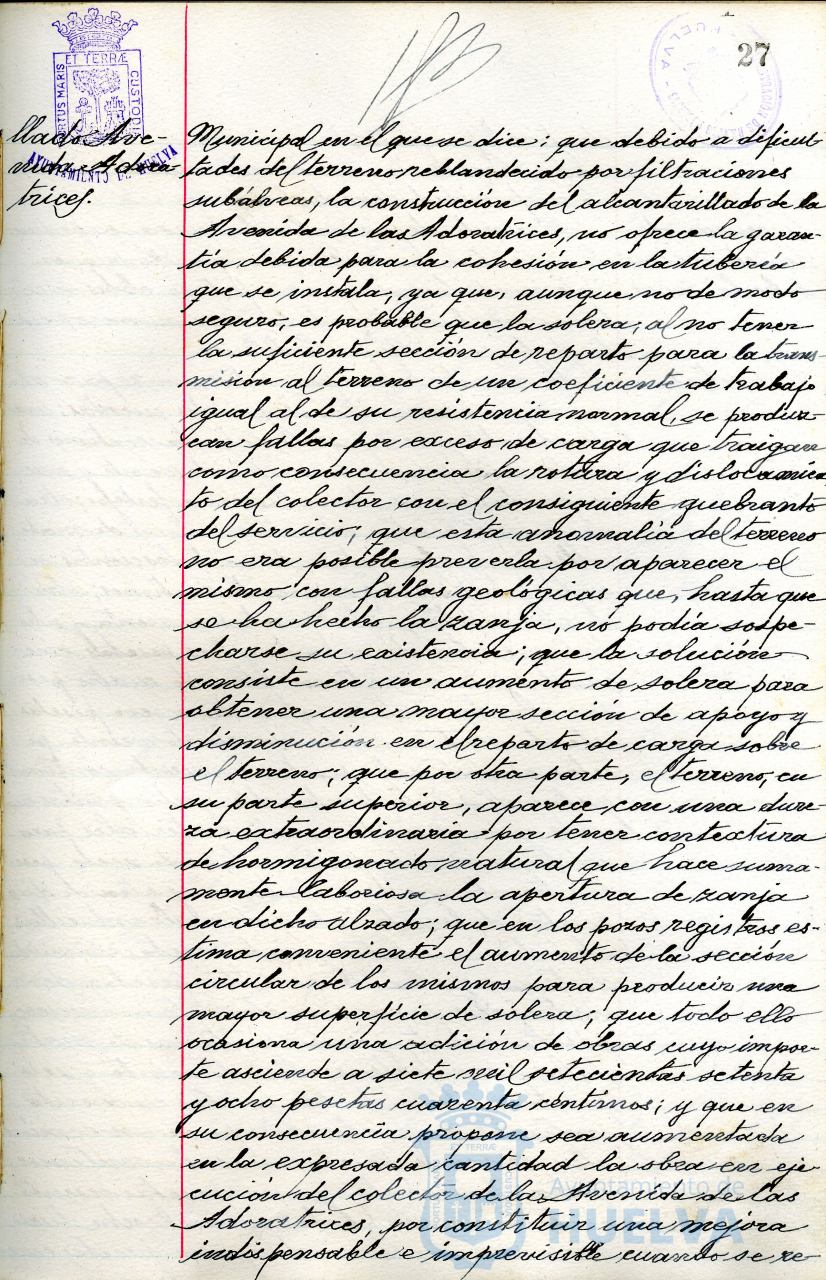 27
ET TERRÆ
PORTUS MARIS
CUSTODIA
AYUNTAMIENTO DE HUELVA
llado Ave-
nida Adora-
trices.
Municipal en el que se dice: que debido a dificul-
tades del terreno reblandecido por filtraciones
subálveas, la construcción del alcantarillado de la
Avenida de las Adoratrices, no ofrece la garan-
tía debida para la cohesión en la tubería
que se instala, ya que, aunque no de modo
seguro, es probable que la solera, al no tener
la suficiente sección de reparto para la trans-
misión al terreno de un coeficiente de trabajo
igual al de su resistencia normal, se produz-
can fallas por exceso de carga que traigan
como consecuencia la rotura y dislocamien-
to del colector con el consiguiente quebranto
del servicio; que esta anomalía del terreno
no era posible preverla por aparecer el
mismo con fallas geológicas que, hasta que
se ha hecho la zanja, no podía sospe-
charse su existencia; que la solución
consiste en un aumento de solera para
obtener una mayor sección de apoyo y
disminución en el reparto de carga sobre
el terreno; que por otra parte, el terreno, en
su parte superior, aparece con una dure-
za extraordinaria por tener contextura
de hormigonado natural que hace suma-
mente laboriosa la apertura de zanja
en dicho alzado; que en los pozos registros es-
tima conveniente el aumento de la sección
circular de los mismos para producir una
mayor superficie de solera; que todo ello
ocasiona una adición de obras cuyo impor-
te asciende a siete mil setecientas setenta
y ocho pesetas cuarenta céntimos; y que en
su consecuencia propone sea aumentada
en la expresada cantidad la obra en eje-
cución del colector de la Avenida de las
Adoratrices, por constituir una mejora
indispensable e imprevisible cuando se re-
Ayuntamiento de
HUELVA